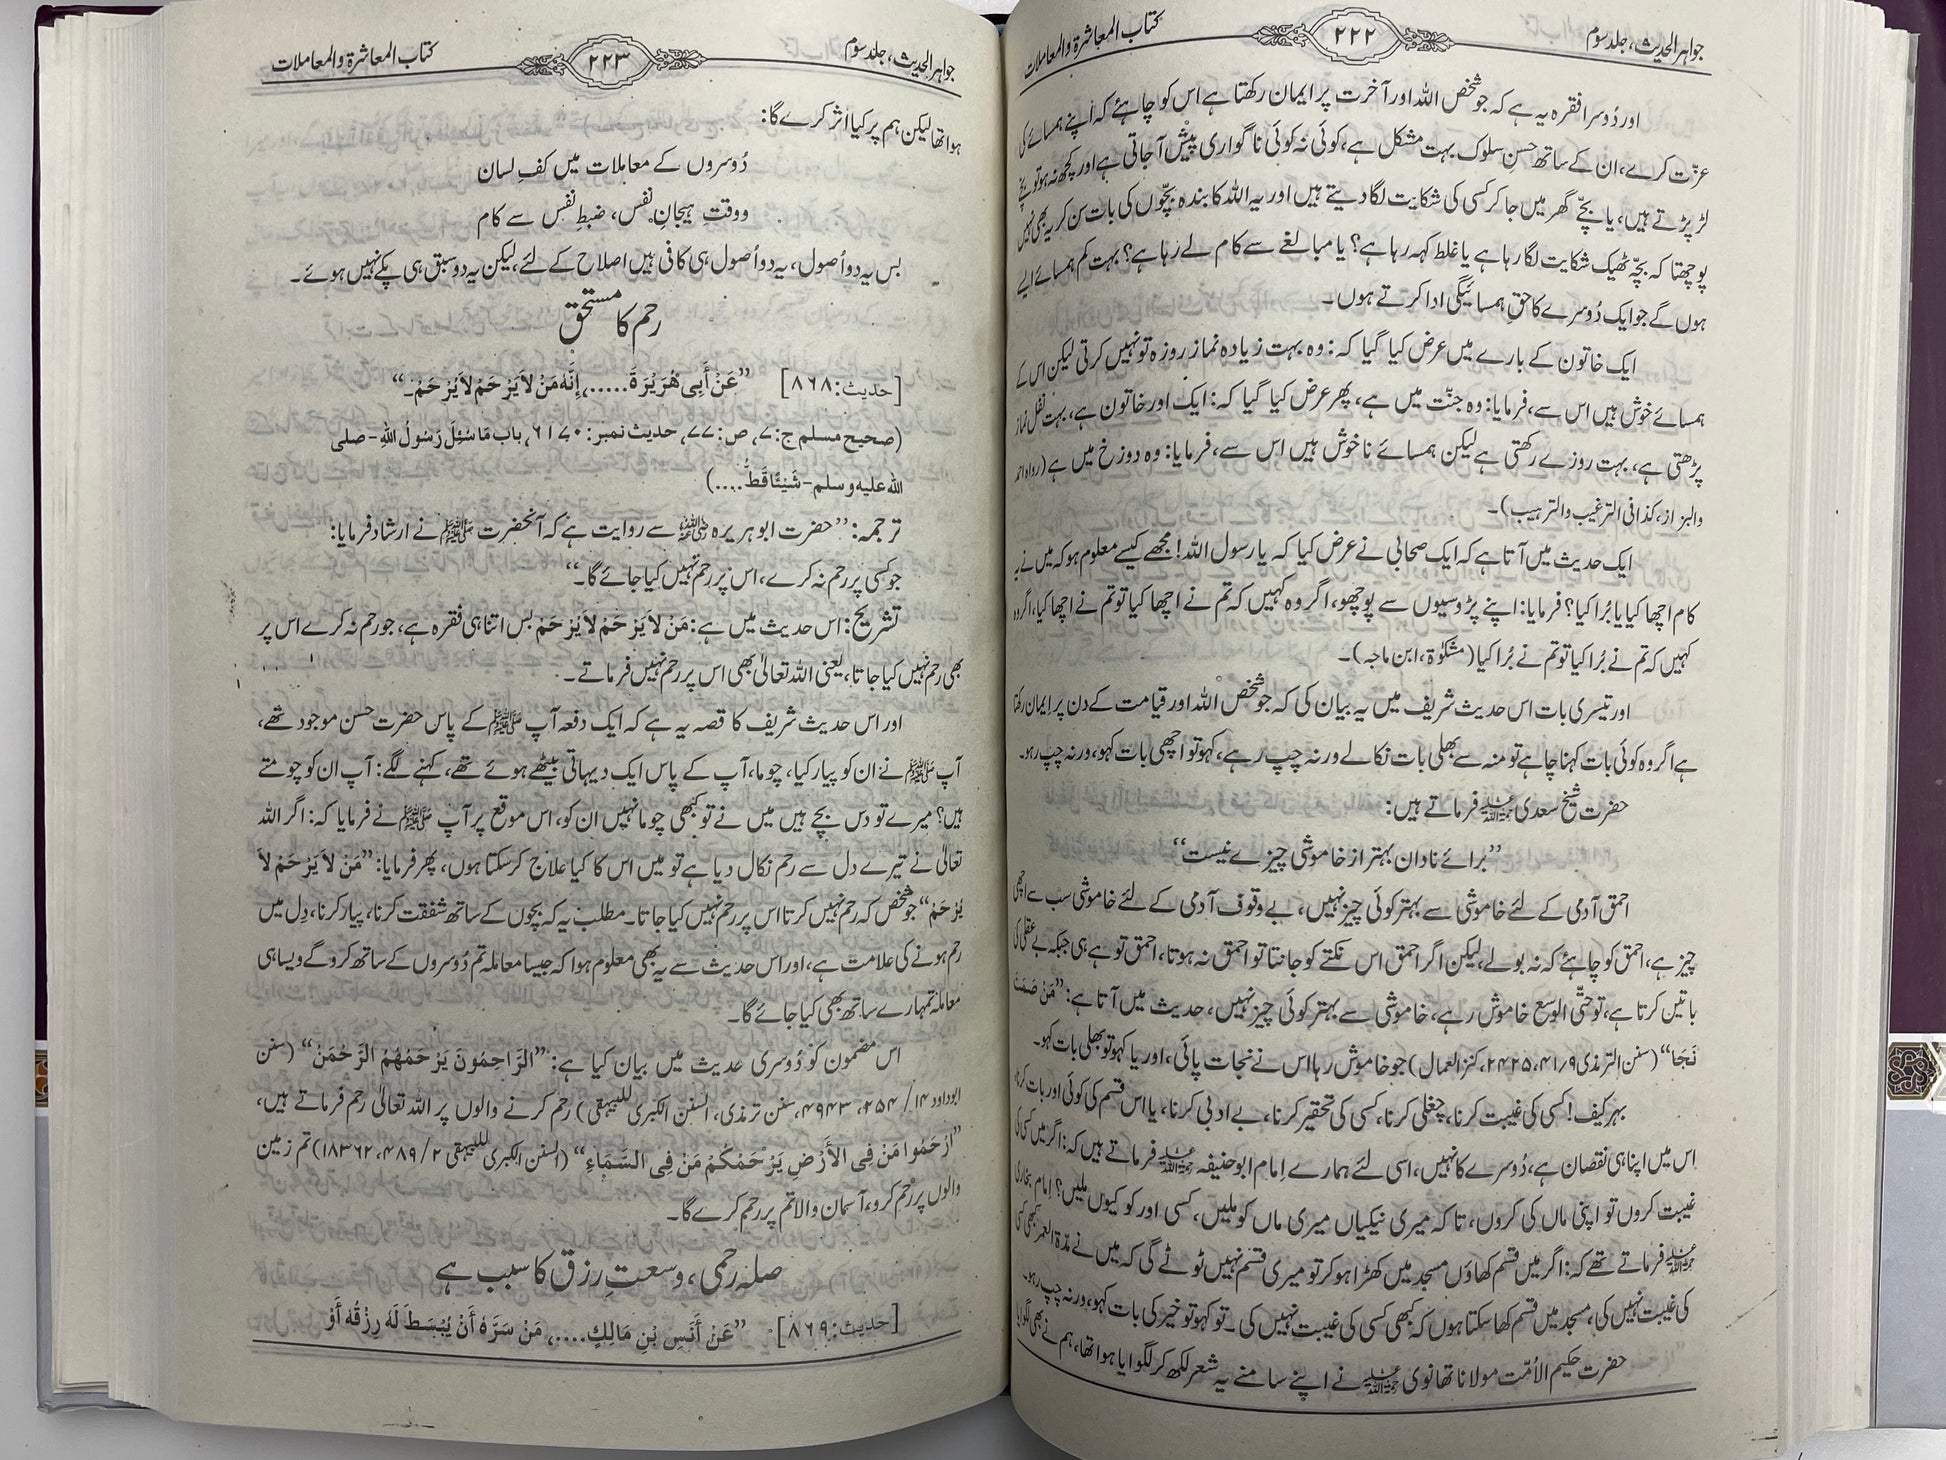 جواہر الحدیث، جلد سوم
۲۲۲
کتاب المعاشرۃ والمعاملات
اور دُوسرا فقرہ یہ ہے کہ جو شخص اللہ اور آخرت پر ایمان رکھتا ہے اس کو چاہئے کہ اپنے ہمسائے کی
عزّت کرے، ان کے ساتھ حسنِ سلوک بہت مشکل ہے، کوئی نہ کوئی ناگواری پیش آجاتی ہے اور کچھ نہ ہو تو بچے
لڑ پڑتے ہیں، یا بچّے گھر میں جاکر کسی کی شکایت لگادیتے ہیں اور یہ اللہ کا بندہ بچّوں کی بات سن کر یہ بھی نہیں
پوچھتا کہ بچّہ ٹھیک شکایت لگا رہا ہے یا غلط کہہ رہا ہے؟ یا مبالغے سے کام لے رہا ہے؟ بہت کم ہمسائے ایسے
ہوں گے جو ایک دُوسرے کا حقِ ہمسائیگی ادا کرتے ہوں۔
ایک خاتون کے بارے میں عرض کیا گیا کہ: وہ بہت زیادہ نماز روزہ تو نہیں کرتی لیکن اس کے
ہمسائے خوش ہیں اس سے، فرمایا: وہ جنّت میں ہے، پھر عرض کیا گیا کہ: ایک اور خاتون ہے، بہت نفل نماز
پڑھتی ہے، بہت روزے رکھتی ہے لیکن ہمسائے ناخوش ہیں اس سے، فرمایا: وہ دوزخ میں ہے (رواہ احمد
والبزاز، کذا فی الترغیب والترہیب)۔
ایک حدیث میں آتا ہے کہ ایک صحابی نے عرض کیا کہ یا رسول اللہ! مجھے کیسے معلوم ہو کہ میں نے یہ
کام اچھا کیا یا بُرا کیا؟ فرمایا: اپنے پڑوسیوں سے پوچھو، اگر وہ کہیں کہ تم نے اچھا کیا تو تم نے اچھا کیا، اگر وہ
کہیں کہ تم نے بُرا کیا تو تم نے بُرا کیا (مشکوٰۃ، ابن ماجہ)۔
اور تیسری بات اس حدیث شریف میں یہ بیان کی کہ جو شخص اللہ اور قیامت کے دن پر ایمان رکھتا
ہے اگر وہ کوئی بات کہنا چاہے تو منہ سے بھلی بات نکالے ورنہ چپ رہے، کہو تو اچھی بات کہو، ورنہ چپ رہو۔
حضرت شیخ سعدی رحمۃ اللہ علیہ فرماتے ہیں:
”برائے نادان بہتر از خاموشی چیزے نیست“
احمق آدمی کے لئے خاموشی سے بہتر کوئی چیز نہیں، بے وقوف آدمی کے لئے خاموشی سب سے اچھی
چیز ہے، احمق کو چاہئے کہ نہ بولے، لیکن اگر احمق اس نکتے کو جانتا تو احمق نہ ہوتا، احمق تو ہے ہی جبکہ بے عقلی کی
باتیں کرتا ہے، تو حتّی الوسع خاموش رہے، خاموشی سے بہتر کوئی چیز نہیں، حدیث میں آتا ہے: ”مَنْ صَمَتَ
نَجَا“ (سنن الترمذی ۹/۴۱، ۲۴۲۵، کنز العمال) جو خاموش رہا اس نے نجات پائی، اور یا کہو تو بھلی بات کہو۔
بہر کیف! کسی کی غیبت کرنا، چغلی کرنا، کسی کی تحقیر کرنا، بے ادبی کرنا، یا اس قسم کی کوئی اور بات کرنا،
اس میں اپنا ہی نقصان ہے، دُوسرے کا نہیں، اسی لئے ہمارے اِمام ابوحنیفہ رحمۃ اللہ علیہ فرماتے ہیں کہ: اگر میں کسی کی
غیبت کروں تو اپنی ماں کی کروں، تاکہ میری نیکیاں میری ماں کو ملیں، کسی اور کو کیوں ملیں؟ اِمام بخاری
رحمۃ اللہ علیہ فرماتے تھے کہ: اگر میں قسم کھاؤں مسجد میں کھڑا ہوکر تو میری قسم نہیں ٹوٹے گی کہ میں نے مدّۃ العمر کبھی کسی
کی غیبت نہیں کی، مسجد میں قسم کھا سکتا ہوں کہ کبھی کسی کی غیبت نہیں کی۔ تو کہو تو خیر کی بات کہو، ورنہ چپ رہو۔
حضرت حکیم الاُمّت مولانا تھانوی رحمۃ اللہ علیہ نے اپنے سامنے یہ شعر لکھ کر لگوایا ہوا تھا، ہم نے بھی لگوایا
جواہر الحدیث، جلد سوم
۲۲۳
کتاب المعاشرۃ والمعاملات
ہوا تھا لیکن ہم پر کیا اَثر کرے گا:
دُوسروں کے معاملات میں کفِ لسان
ووقتِ ہیجانِ نفس، ضبطِ نفس سے کام
بس یہ دو اُصول، یہ دو اُصول ہی کافی ہیں اصلاح کے لئے، لیکن یہ دو سبق ہی پکے نہیں ہوئے۔
رحم کا مستحق
[حدیث:۸۶۸] ”عَنْ أَبِی هُرَیْرَةَ.....، إِنَّهٗ مَنْ لَا یَرْحَمْ لَا یُرْحَمْ۔“
(صحیح مسلم ج:۷، ص:۷۷، حدیث نمبر: ۶۱۷۰، باب مَا سُئِلَ رَسُولُ اللهِ -صلی
الله علیه وسلم- شَیْئًا قَطُّ....)
ترجمہ: ”حضرت ابوہریرہ رضی اللہ عنہ سے روایت ہے کہ آنحضرت ﷺ نے ارشاد فرمایا:
جو کسی پر رحم نہ کرے، اس پر رحم نہیں کیا جائے گا۔“
تشریح: اس حدیث میں ہے: مَنْ لَا یَرْحَمْ لَا یُرْحَمْ بس اتنا ہی فقرہ ہے، جو رحم نہ کرے اس پر
بھی رحم نہیں کیا جاتا، یعنی اللہ تعالیٰ بھی اس پر رحم نہیں فرماتے۔
اور اس حدیث شریف کا قصہ یہ ہے کہ ایک دفعہ آپ ﷺ کے پاس حضرت حسن موجود تھے،
آپ ﷺ نے ان کو پیار کیا، چوما، آپ کے پاس ایک دیہاتی بیٹھے ہوئے تھے، کہنے لگے: آپ ان کو چومتے
ہیں؟ میرے تو دس بچے ہیں میں نے تو کبھی چوما نہیں ان کو، اس موقع پر آپ ﷺ نے فرمایا کہ: اگر اللہ
تعالیٰ نے تیرے دل سے رحم نکال دیا ہے تو میں اس کا کیا علاج کرسکتا ہوں، پھر فرمایا: ”مَنْ لَا یَرْحَمْ لَا
یُرْحَمْ“ جو شخص کہ رحم نہیں کرتا اس پر رحم نہیں کیا جاتا۔ مطلب یہ کہ بچوں کے ساتھ شفقت کرنا، پیار کرنا، دِل میں
رحم ہونے کی علامت ہے، اور اس حدیث سے یہ بھی معلوم ہوا کہ جیسا معاملہ تم دُوسروں کے ساتھ کروگے ویسا ہی
معاملہ تمہارے ساتھ بھی کیا جائے گا۔
اس مضمون کو دُوسری حدیث میں بیان کیا ہے: ”الرَّاحِمُونَ یَرْحَمُهُمُ الرَّحْمٰنُ“ (سنن
ابوداود ۱۴/ ۲۵۴، ۴۹۴۳، سنن ترمذی، السنن الکبریٰ للبیہقی) رحم کرنے والوں پر اللہ تعالیٰ رحم فرماتے ہیں،
”ارْحَمُوا مَنْ فِی الْأَرْضِ یَرْحَمْکُمْ مَنْ فِی السَّمَاءِ“ (السنن الکبریٰ للبیہقی ۲/ ۴۸۹، ۱۸۳۶۲) تم زمین
والوں پر رحم کرو، آسمان والا تم پر رحم کرے گا۔
صلہ رحمی، وسعتِ رزق کا سبب ہے
[حدیث:۸۶۹] ”عَنْ أَنَسِ بْنِ مَالِكٍ....، مَنْ سَرَّهٗ أَنْ یُبْسَطَ لَهٗ رِزْقُهٗ أَوْ